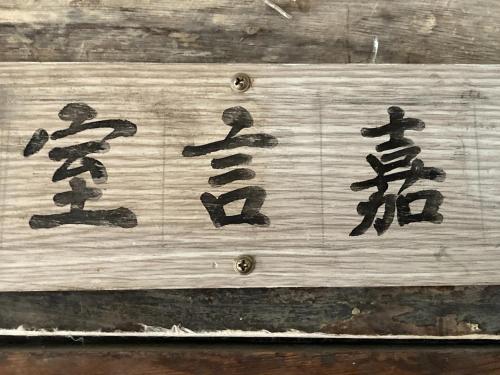 嘉言室